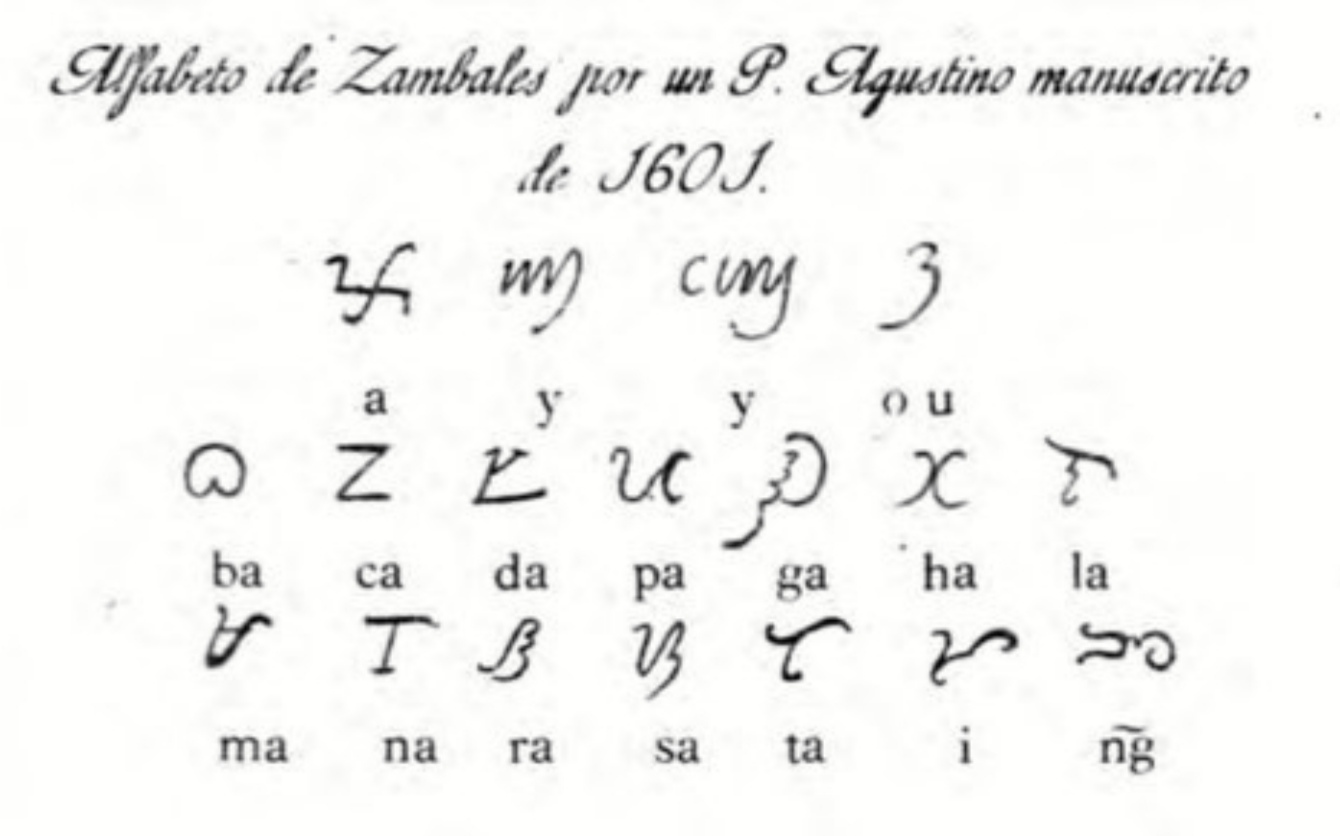 Alfabeto de Zambales por un P. Agustino manuscrito
de 1601.
ᜀ ᜁ ᜁ ᜂ
a y y o u
ᜊ ᜃ ᜇ ᜉ ᜄ ᜑ ᜎ
ba ca da pa ga ha la
ᜋ ᜈ ᜍ ᜐ ᜆ ᜌ ᜅ
ma na ra sa ta i n͠g